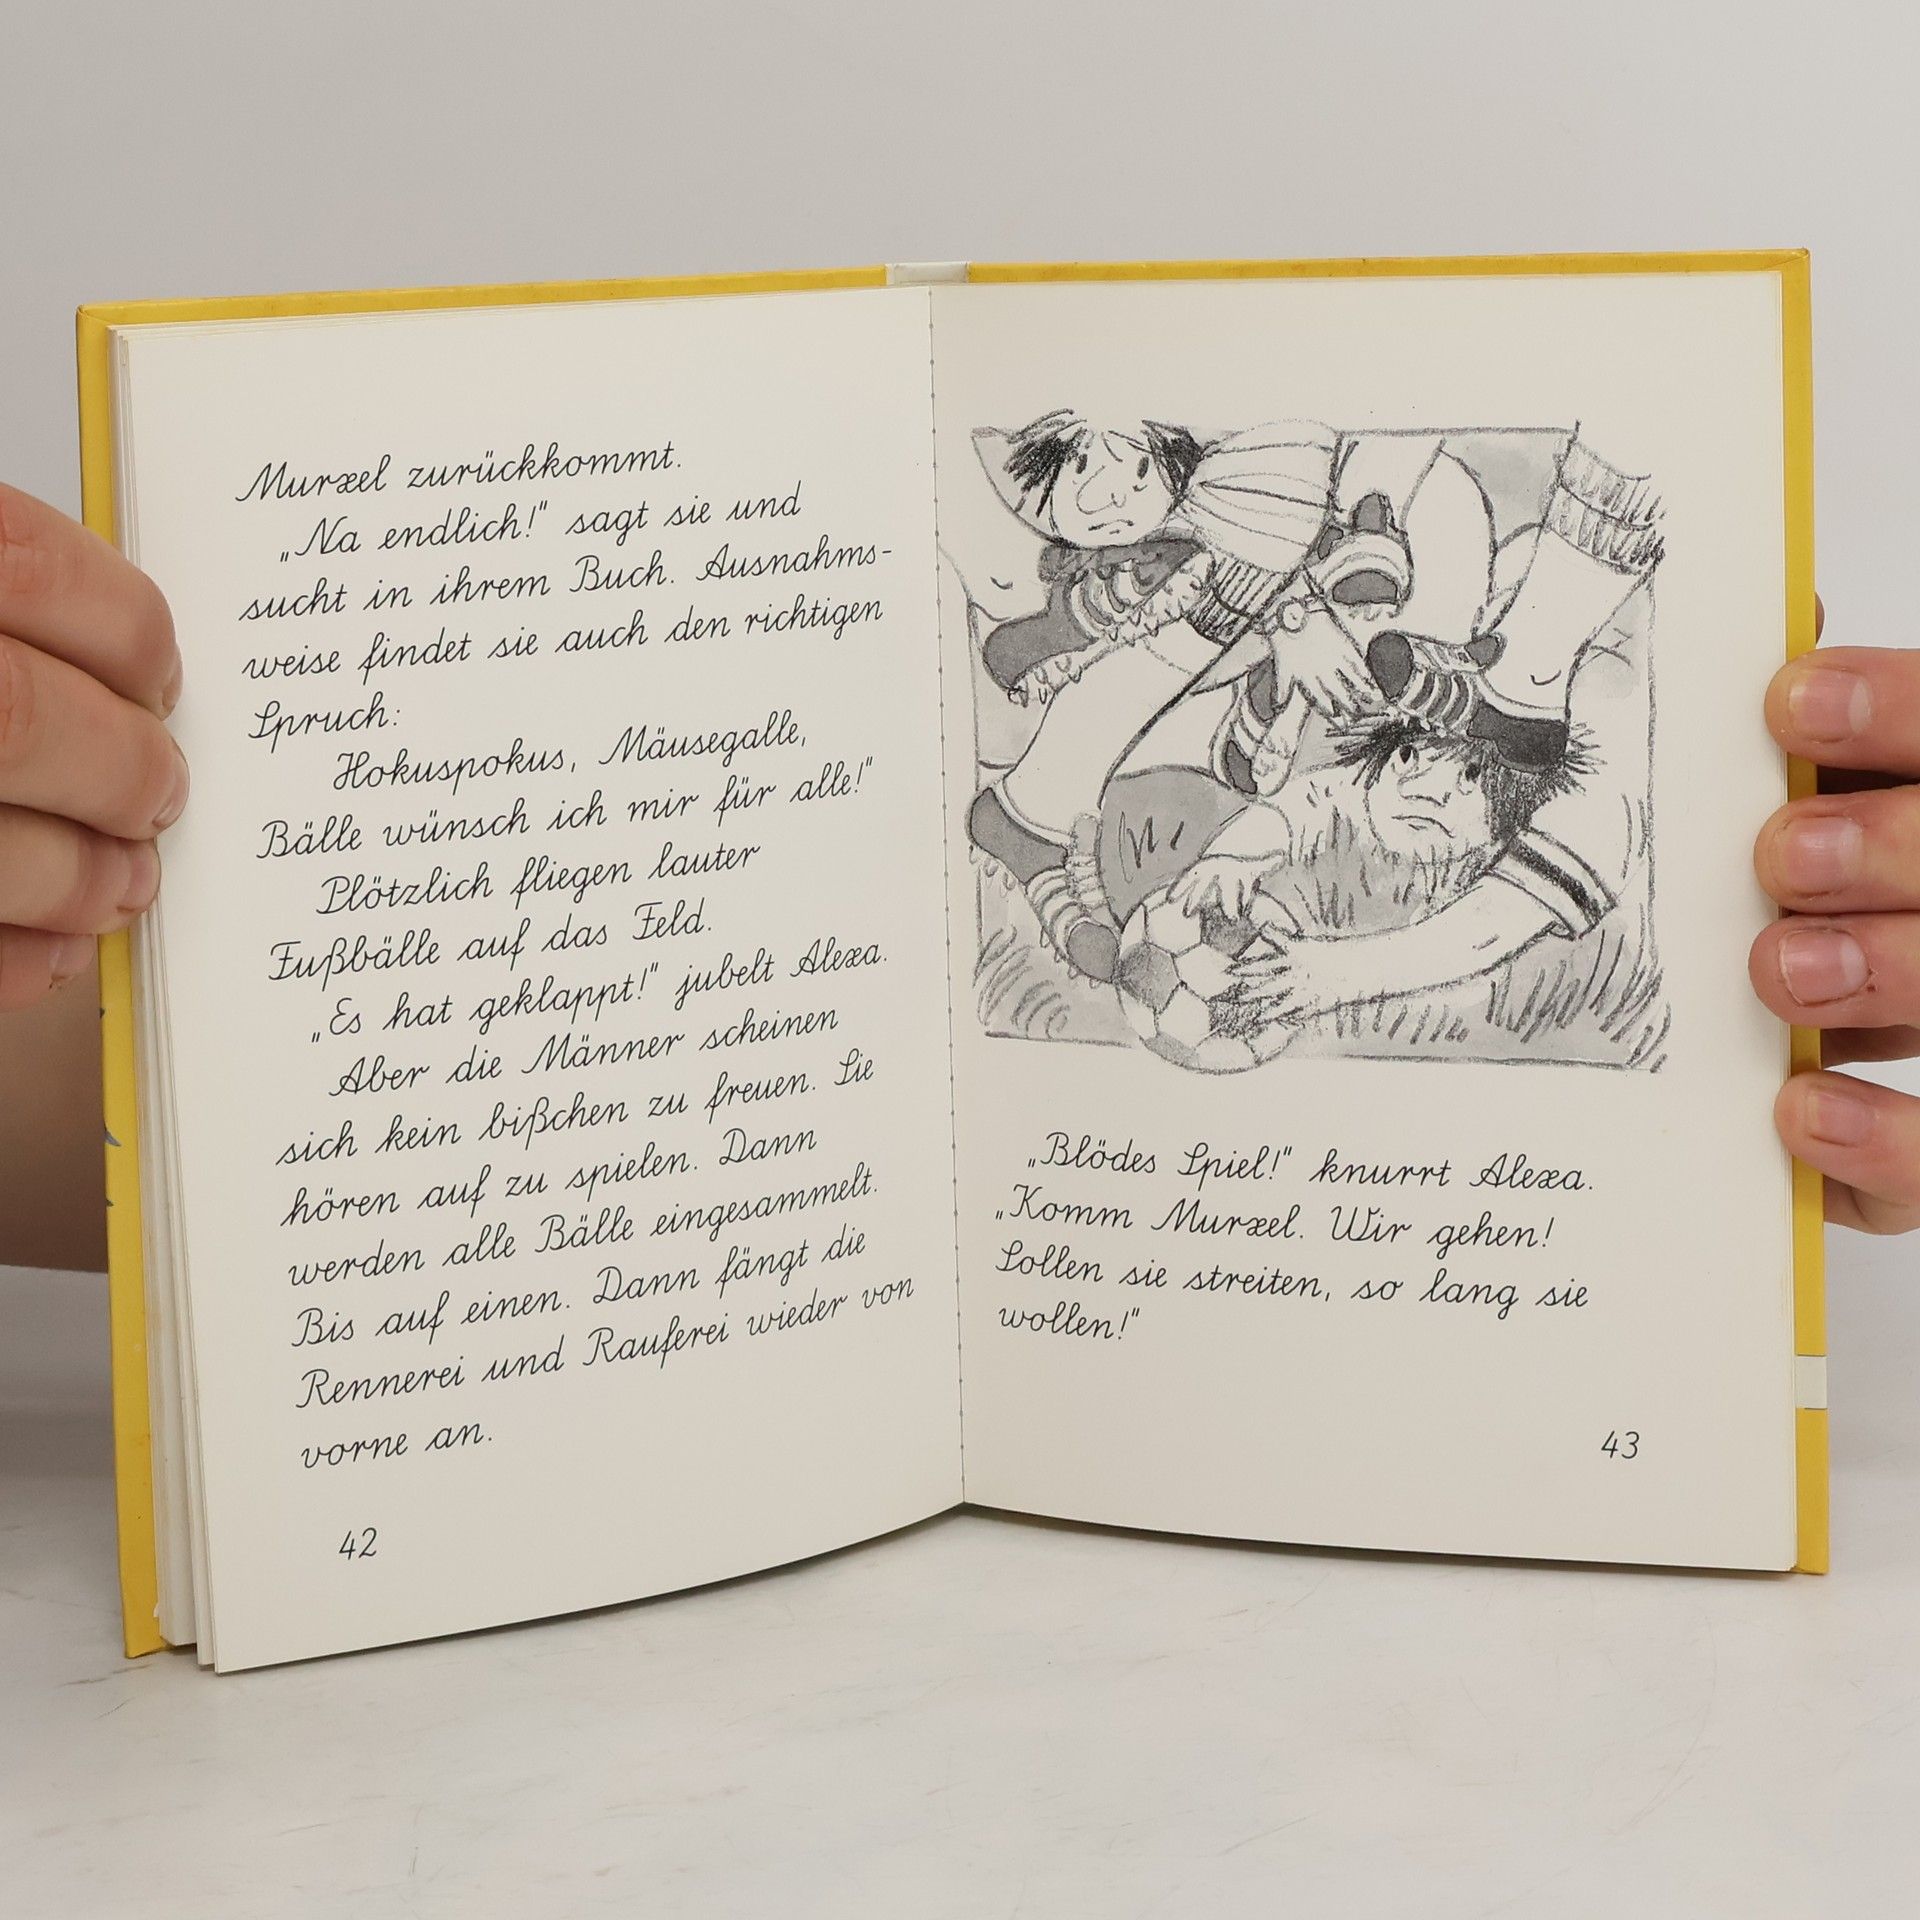 Murxel zurückkommt.
„Na endlich!" sagt sie und
sucht in ihrem Buch. Ausnahms-
weise findet sie auch den richtigen
Spruch:
Hokuspokus, Mäusegalle,
Bälle wünsch ich mir für alle!"
Plötzlich fliegen lauter
Fußbälle auf das Feld.
„Es hat geklappt!" jubelt Alexa.
Aber die Männer scheinen
sich kein bißchen zu freuen. Sie
hören auf zu spielen. Dann
werden alle Bälle eingesammelt.
Bis auf einen. Dann fängt die
Rennerei und Rauferei wieder von
vorne an.
42
„Blödes Spiel!" knurrt Alexa.
„Komm Murxel. Wir gehen!
Sollen sie streiten, so lang sie
wollen!"
43